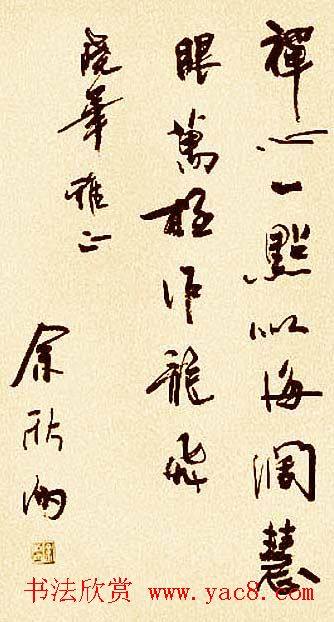 禪心一點似海闊慧
眼萬作龍飛
晓華雅正
余秋雨
书法欣赏 www.yac8.com